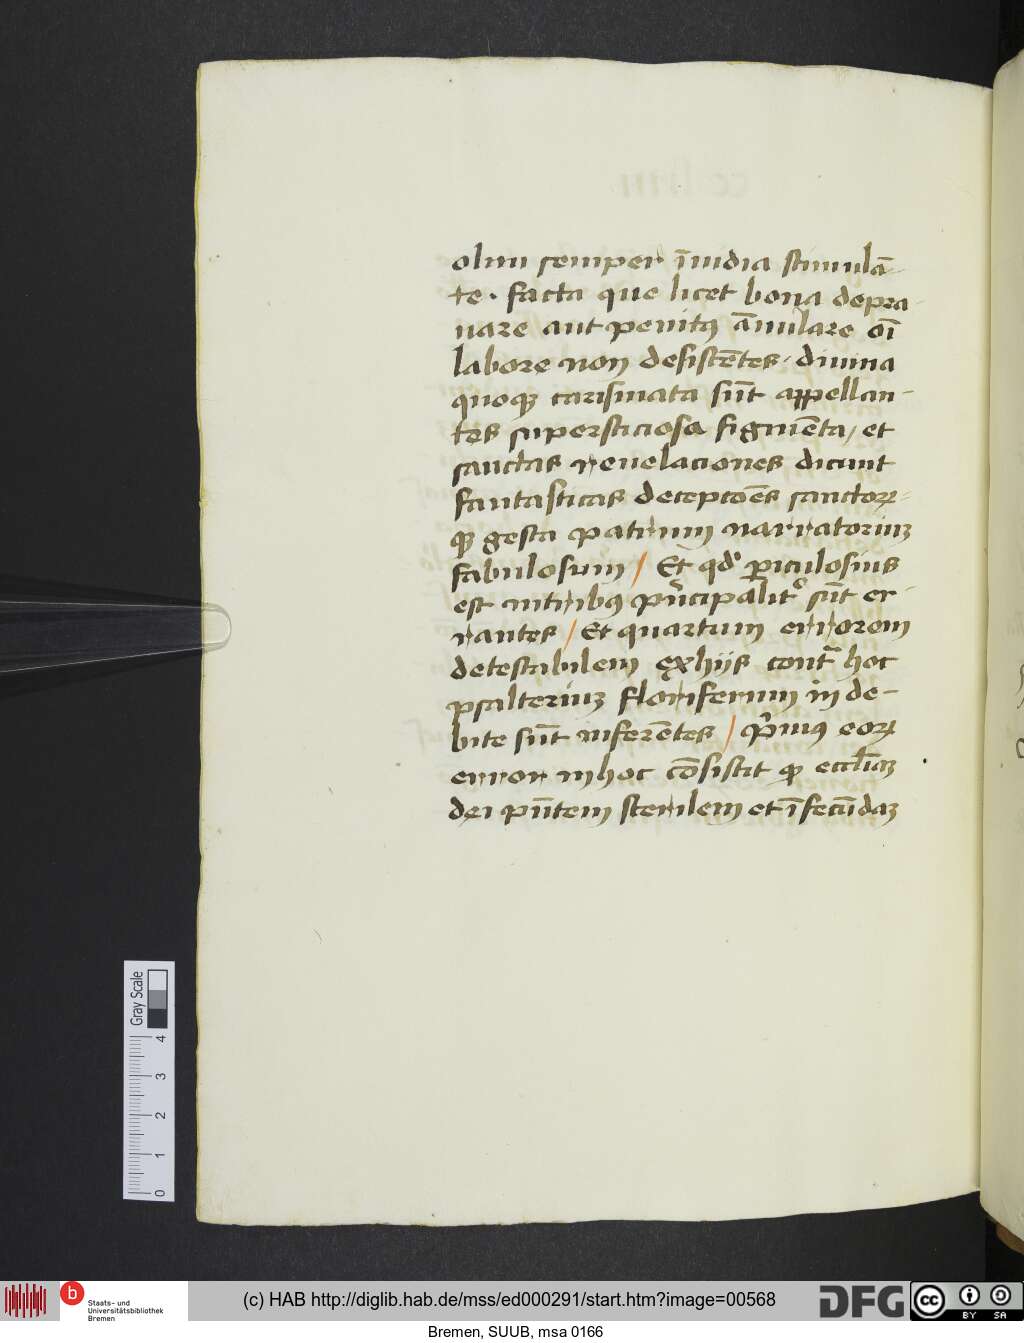 olim semper īuidia stimulā-
te · facta que licet bona depra-
uare aut penitꝯ ānulare oī
labore non desistētes · diuina
quoqꝫ carismata sūt appellan-
tes supersticiosa figmēta / et
sanctas reuelaciones dicunt
fantasticas deceptōes sanctoꝝ=
qꝫ gesta patrum narratoriuꝫ
fabulosum / Et qd' ꝑiculosius
est intribꝯ pͥncipalitͦ sūt er-
rantes / Et quartum errorem
detestabilem exhijs contͣ hoc
psalteriuꝫ floriferum in de-
bite sūt inferētes / pͥmus eoꝝ
error inhoc cōsistit ꝙ eccl̄iaꝫ
dei pn̄tem sterilem et īfecūdaꝫ
Gray Scale
0 1 2 3 4
b
Staats- und
Universitätsbibliothek
Bremen
(c) HAB http://diglib.hab.de/mss/ed000291/start.htm?image=00568
DFG
cc BY SA
Bremen, SUUB, msa 0166